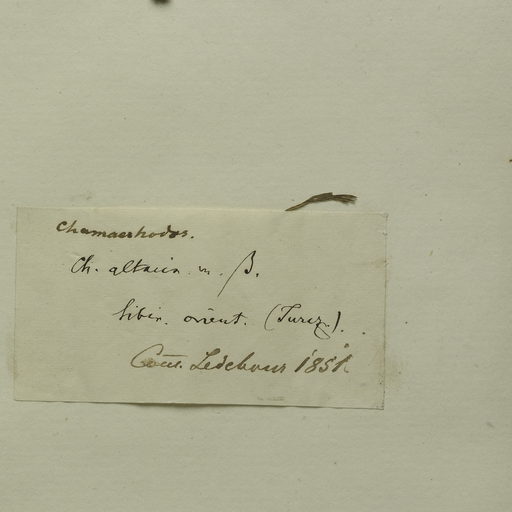 Chamaerhodos.
Ch. altaica m. β.
Sibir. orient. (Turcz.).
Com. Ledebour 1851